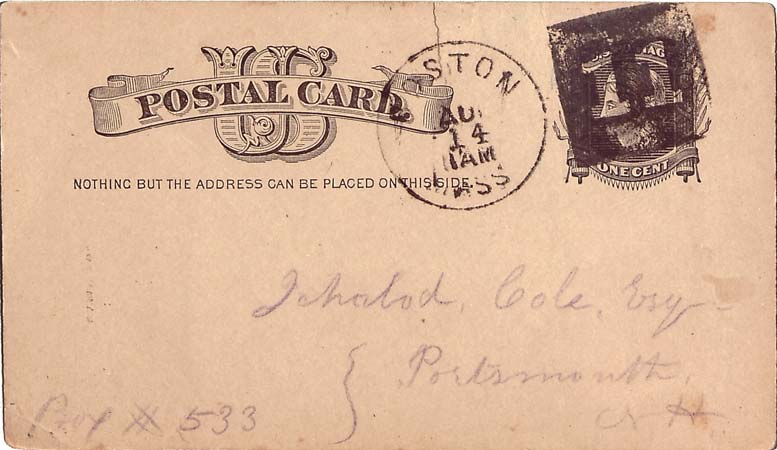 US
POSTAL CARD.
NOTHING BUT THE ADDRESS CAN BE PLACED ON THIS SIDE.
STON
AU
14
11AM
MASS
ONE CENT
Ichabod, Cole, Esq
Portsmouth,
N H
Box # 533